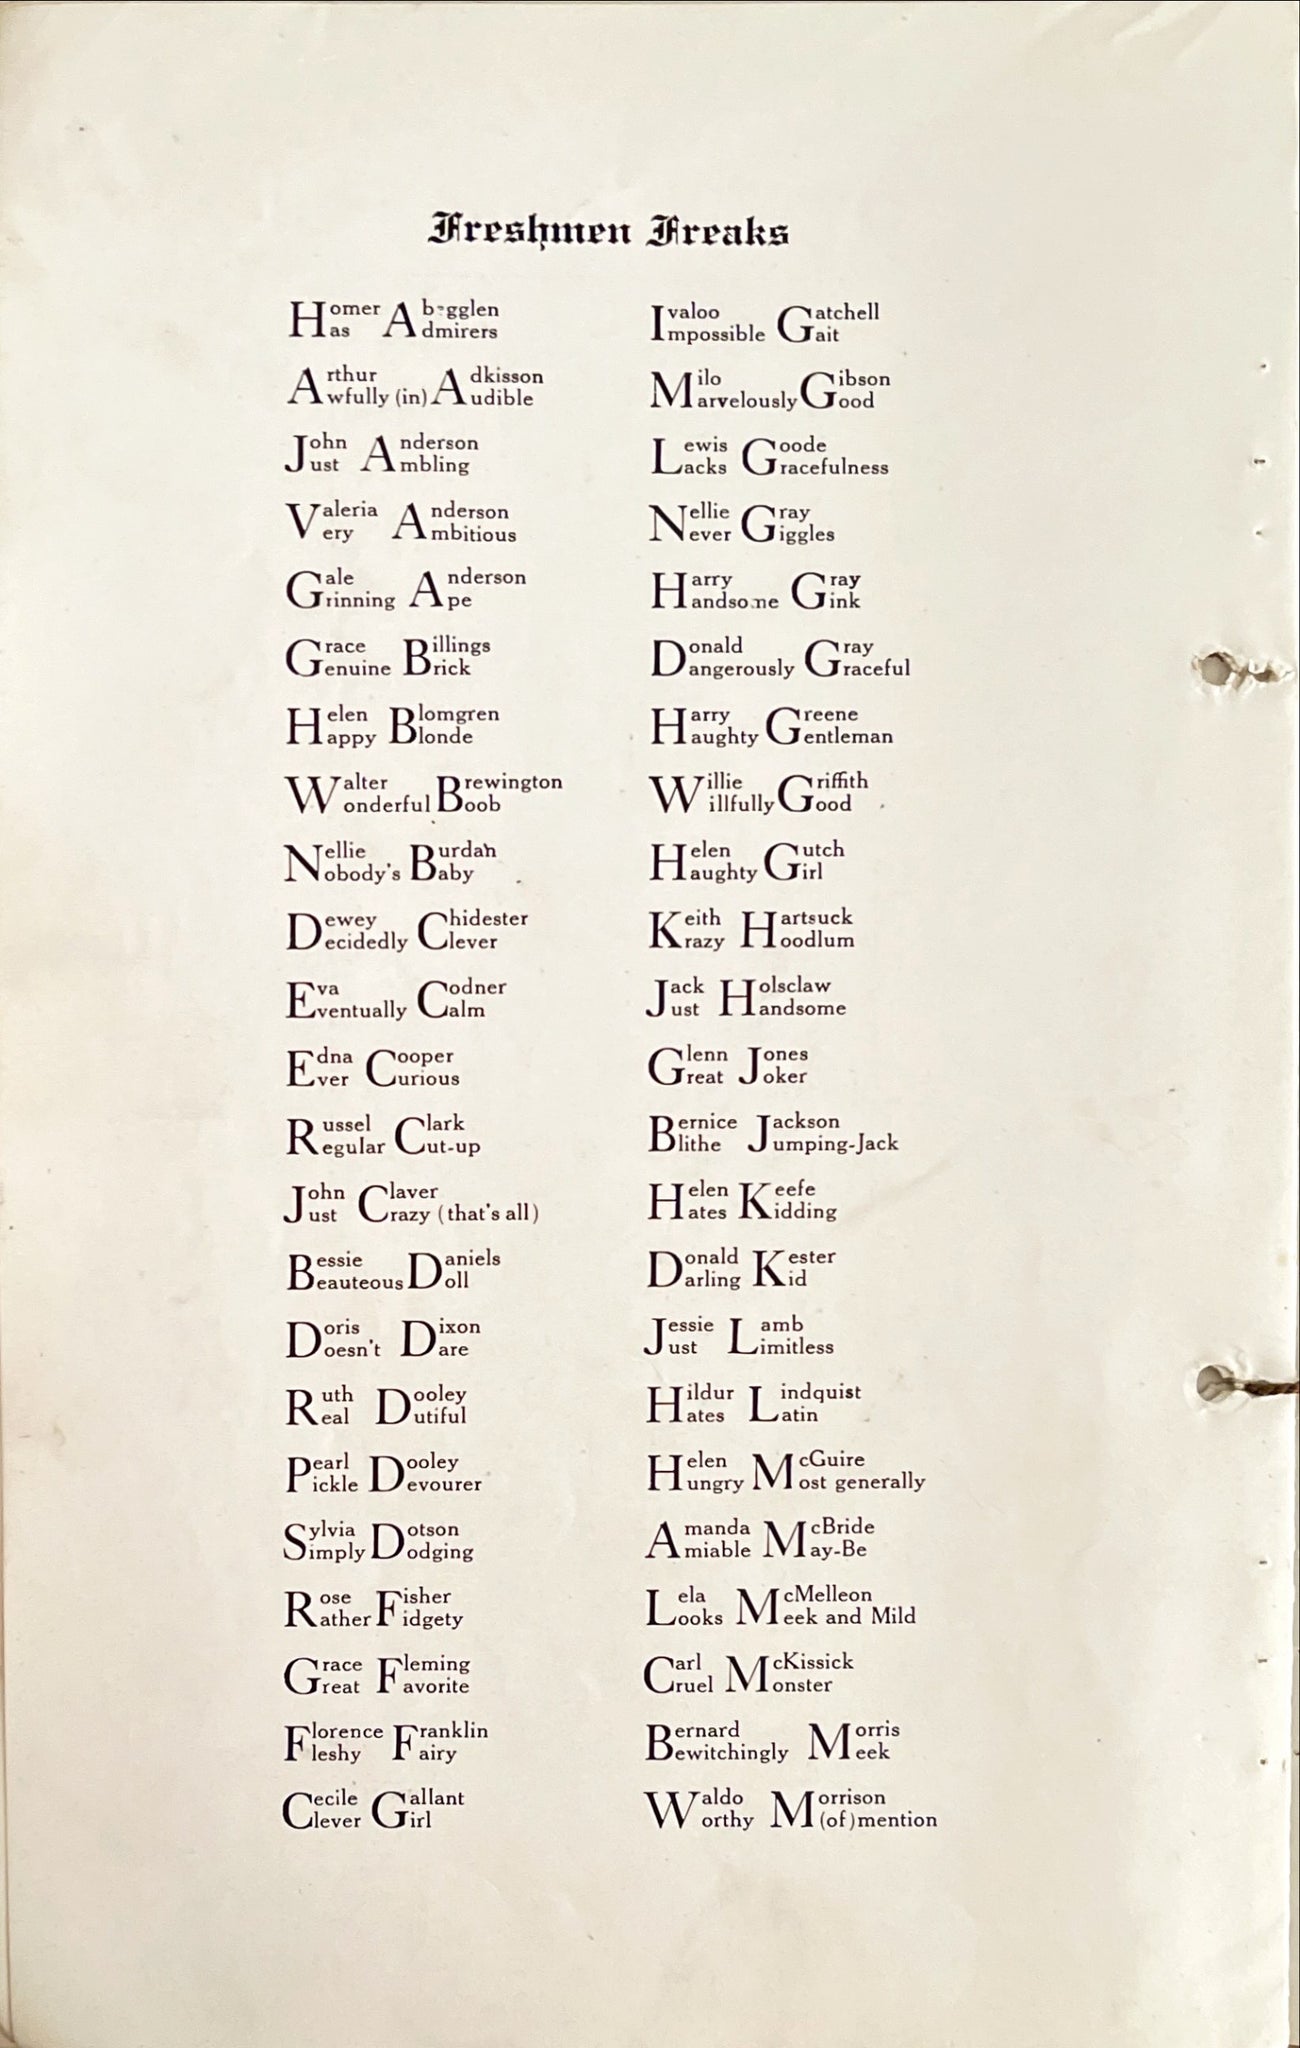 Freshmen Freaks
Homer
Has Admirers
Arthur Adkisson
Awfully (in) Audible
John Anderson
Just Ambling
Valeria Anderson
Very Ambitious
Gale Anderson
Grinning Ape
Grace Billings
Genuine Brick
Helen Blomgren
Happy Blonde
Walter Brewington
Wonderful Boob
Nellie Burdah
Nobody's Baby
Dewey Chidester
Decidedly Clever
Eva Codner
Eventually Calm
Edna Cooper
Ever Curious
Russel Clark
Regular Cut-up
John Claver
Just Crazy (that's all)
Bessie Daniels
Beauteous Doll
Doris Dixon
Doesn't Dare
Ruth Dooley
Real Dutiful
Pearl Dooley
Pickle Devourer
Sylvia Dotson
Simply Dodging
Rose Fisher
Rather Fidgety
Grace Fleming
Great Favorite
Florence Franklin
Fleshy Fairy
Cecile Gallant
Clever Girl
Ivaloo Gatchell
Impossible Gait
Milo Gibson
Marvelously Good
Lewis Goode
Lacks Gracefulness
Nellie Gray
Never Giggles
Harry Gray
Handsome Gink
Donald Gray
Dangerously Graceful
Harry Greene
Haughty Gentleman
Willie Griffith
Willfully Good
Helen Gutch
Haughty Girl
Keith Hartsuck
Krazy Hoodlum
Jack Holsclaw
Just Handsome
Glenn Jones
Great Joker
Bernice Jackson
Blithe Jumping-Jack
Helen Keefe
Hates Kidding
Donald Kester
Darling Kid
Jessie Lamb
Just Limitless
Hildur Lindquist
Hates Latin
Helen McGuire
Hungry Most generally
Amanda McBride
Amiable May-Be
Lela McMelleon
Looks Meek and Mild
Carl McKissick
Cruel Monster
Bernard Morris
Bewitchingly Meek
Waldo Morrison
Worthy M(of)mention